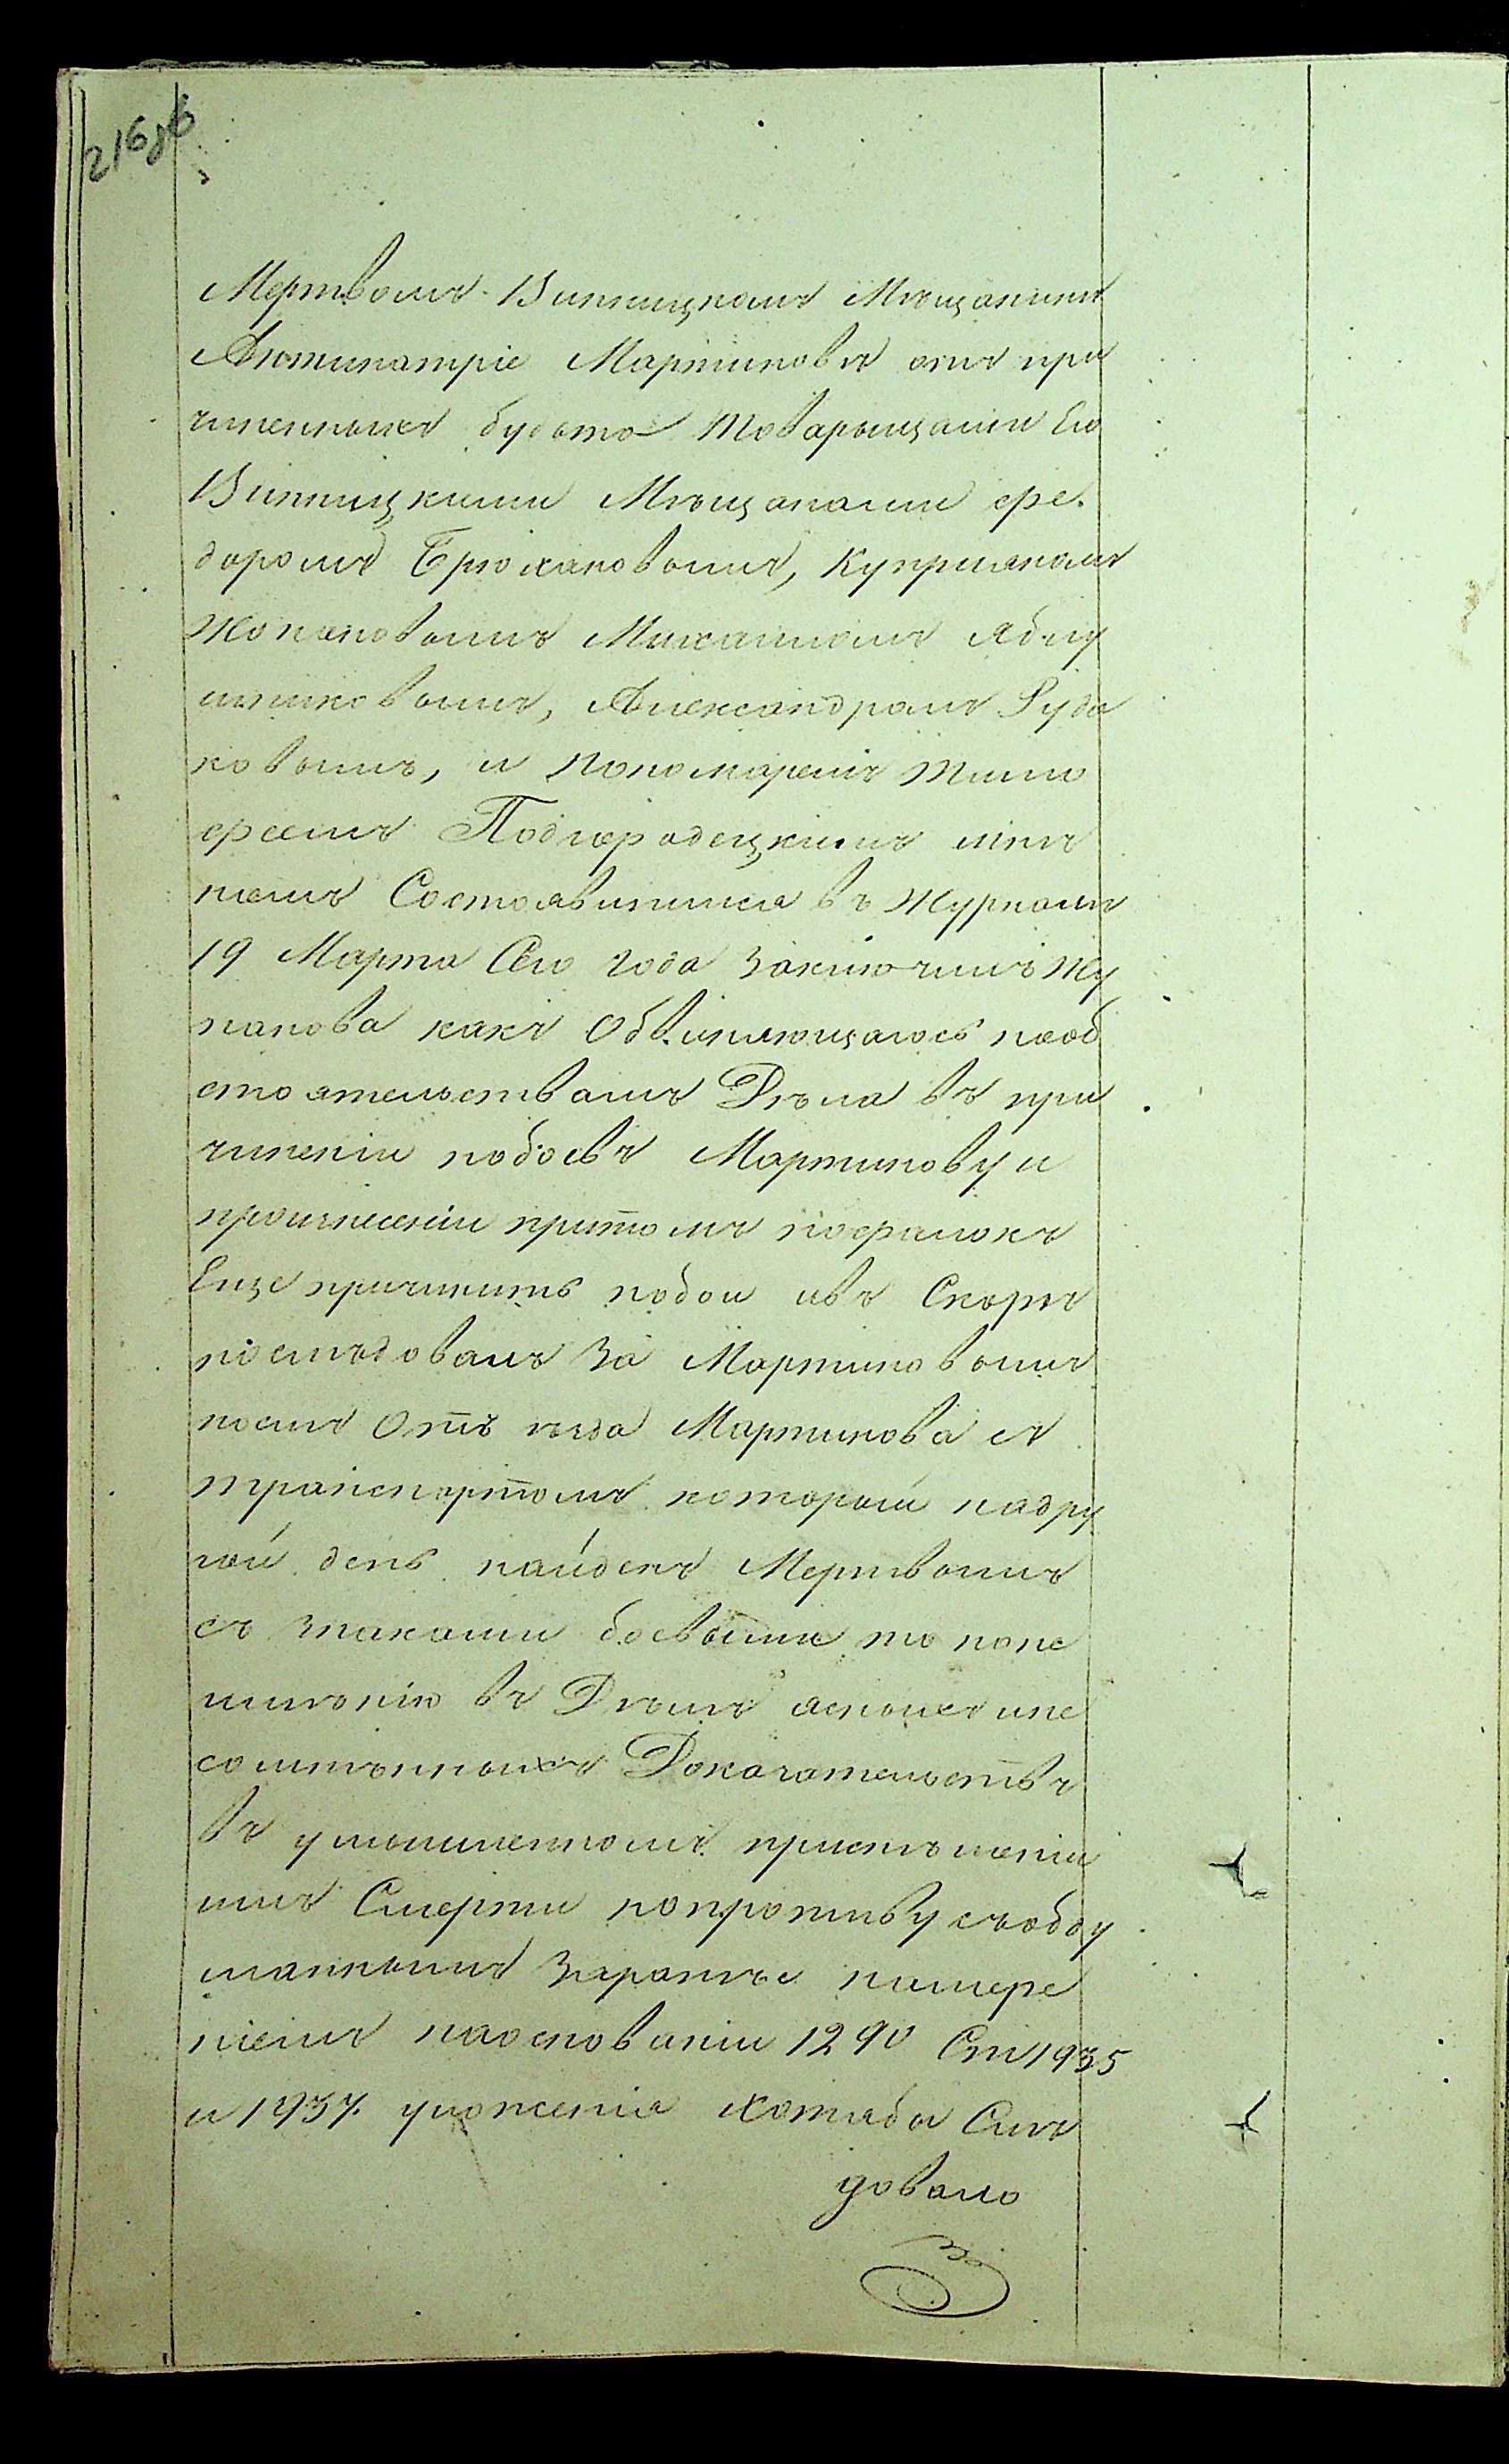 216об
Мертвомъ Винницкомъ Мѣщанинѣ
Антипатріе Мартиновѣ отъ при
чиненныхъ будьто товарыщами Его
Винницкими Мѣщанами фе
доромъ Брюхановымъ, Куприяномъ
Жопановымъ Михаиломъ Яблу
шниковымъ, Александромъ Руда
ковымъ, и Пономаремъ Тимо
феемъ Подгородецкимъ мнѣ
ніемъ Состоявшимся въ Журналѣ
19 Марта Сего года Заключилъ Жу
панова какъ Обвиняющагось пооб
стоятельствамъ Дѣла въ при
чиненіи побоевъ Мартинову и
произнесеніи притомъ пофалокъ
Еще причинить побои ивъ Скорѣ
послѣдовалъ За Мартиновымъ
послѣ Отъ ѣзда Мартинова съ
транспортомъ который надру
гой день найденъ Мертвымъ
съ знаками боевыми то попе
имѣнію въ Дѣлѣ ясныхъ ине
сомнѣнныхъ Доказательствъ
въ умышленномъ
имъ Смерти попротиву съобду
маннымъ Заранѣе намере
ніемъ наоснованіи 1290 Ст 1935
и 1937 уложенія хотябы Слѣ
довало